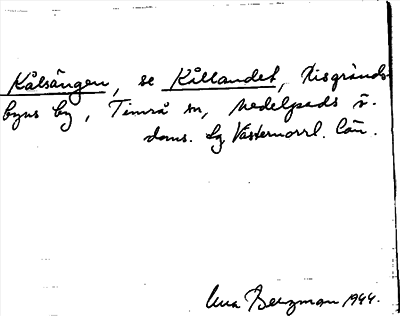 Kålsängen, se Kållandet, Tisgrånds-
byns by, Timrå sn, Medelpads v.
doms. hg Västernorrl. län.
Una Bergman 1944.